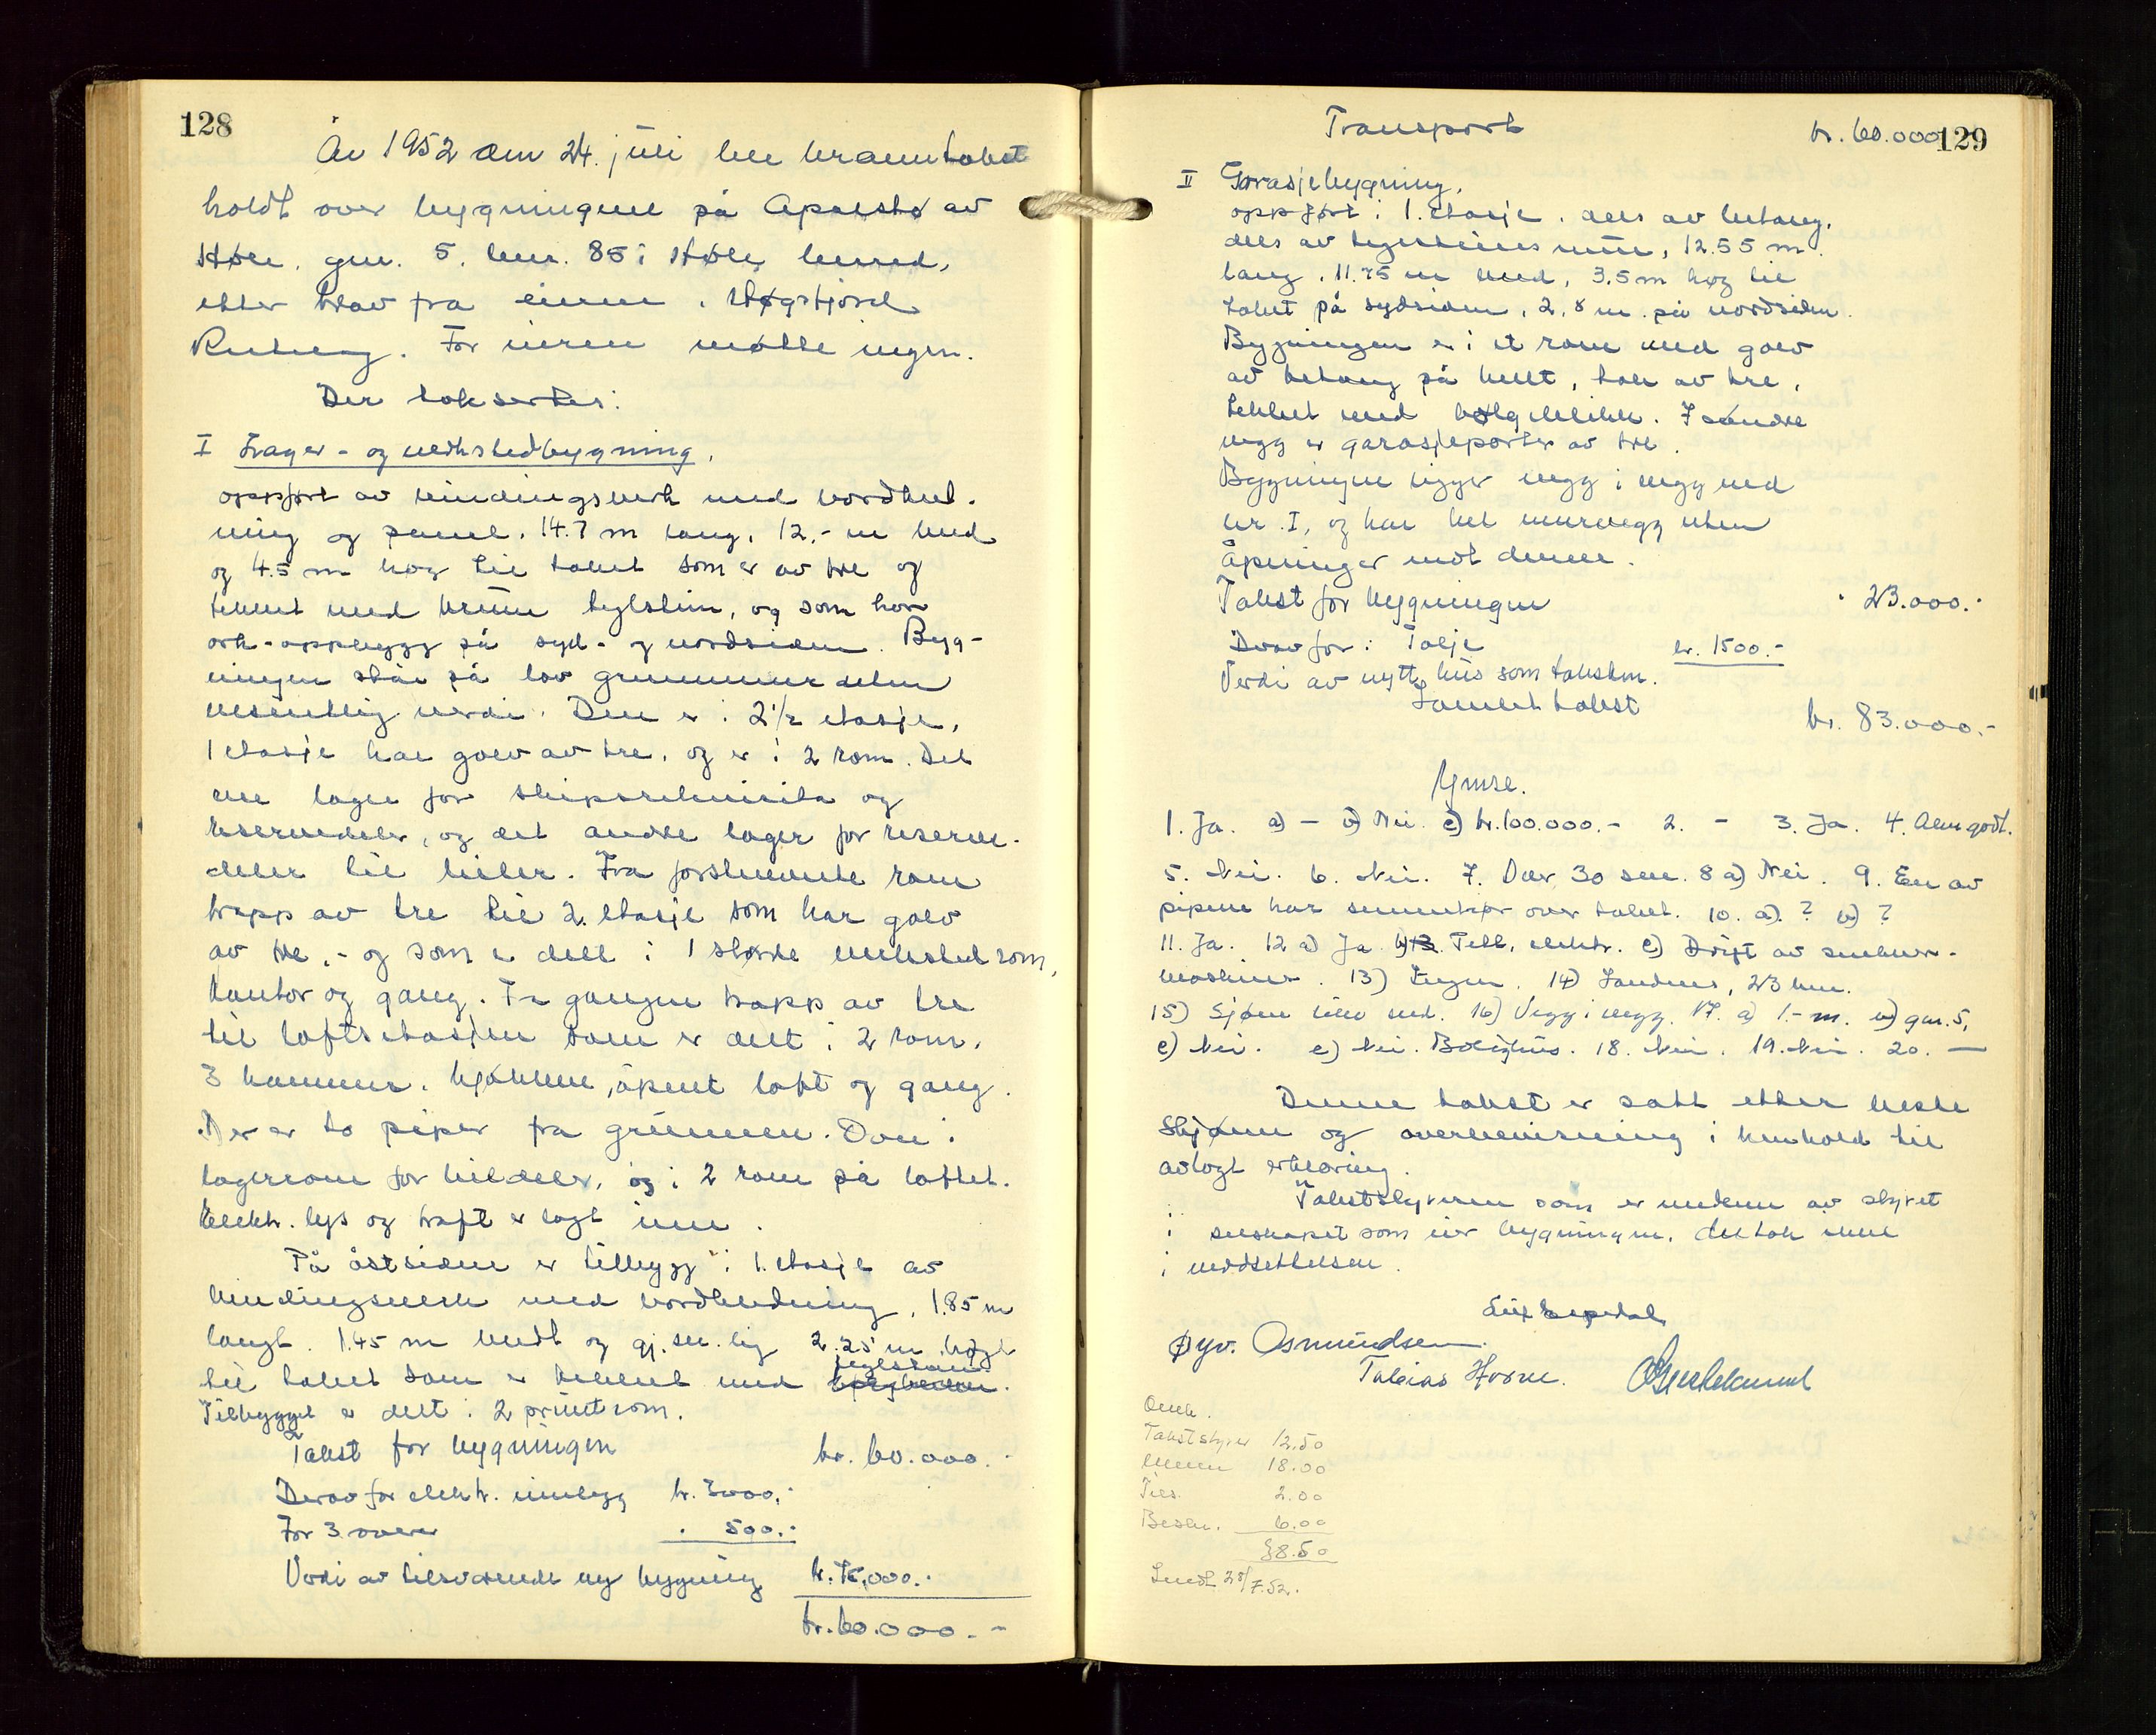 128
År 1952 den 24. juli ble branntakst
holdt over bygningene på Apalstø av
Høle, gnr. 5, bnr. 85 i Høle herred,
etter krav fra eieren, Høgsfjord
Rutelag. For eieren møtte ingen.
Der taksertes:
I Lager- og verkstedbygning,
oppført av bindingsverk med bordkled-
ning og panel, 14.7 m lang, 12,- m bred
og 4.5 m høg til taket som er av tre og
tekket med brune teglstein, og som har
ark-oppbygg på syd- og nordsiden. Byg-
ningen står på lav grunnmur uten
vesentlig verdi. Den er i 2½ etasje,
1 etasje har golv av tre, og er i 2 rom. Det
ene lager for skipsrekvisita og
reservedeler, og det andre lager for reserve-
deler til biler. Fra førstnevnte rom
trapp av tre til 2. etasje som har golv
av tre, - og som er delt i 1 større verksted rom,
kontor og gang. Fra gangen trapp av tre
til loftsetasjen som er delt i 2 rom,
3 kammer, kjøkken, åpent loft og gang.
Der er to piper fra grunnen. Ovn i
lagerrom for bildeler, og i 2 rom på loftet.
Elektr. lys og kraft er lagt inn.
På østsiden er tilbygg i 1. etasje av
bindingsverk med bordkledning, 1.85 m
langt, 1.45 m bredt og gj.sn.lig 2.25 m høgt
teglstein
til taket som er tekket med
Tilbygget er delt i 2 privetrom.
Takst for bygningen kr. 60.000.-
Derav for elektr. innlegg kr. 3000.-
For 3 ovner " 500.-
Verdi av tilsvarende ny bygning kr. 75.000.-
kr. 60.000.-
Transport kr. 60.000 129
II Garasjebygning,
oppført i 1. etasje, dels av betong,
dels av teglsteins mur, 12.55 m
lang, 11.75 m bred, 3.5 m høg til
taket på sydsiden, 2.8 m på nordsiden.
Bygningen er i et rom med golv
av betong på kult, tak av tre,
tekket med bølgeblikk. I søndre
vegg er garasjeporter av tre.
Bygningen ligger vegg i vegg med
nr. I, og har hel murvegg uten
åpninger mot denne.
Takst for bygningen " 23.000.-
Derav for: Talje kr. 1500.-
Verdi av nytt hus som taksten.
Samlet takst kr. 83.000.-
Ymse.
1. Ja. a) - b) Nei. c) kr. 100.000.- 2. - 3. Ja. 4. Alm godt.
5. Nei. 6. Nei. 7. Over 30 cm. 8 a) Nei. 9. En av
pipene har sementrør over taket. 10. a) ? b) ?
11. Ja. 12 a) Ja b) Tekn. elektr. c) Drift av snekker-
maskiner. 13) Ingen. 14) Sandnes, 23 km.
15) Sjøen like ved. 16) Vegg i vegg. 17. a) 1.- m. b) gnr. 5,
c) Nei. e) Nei. Bolighus. 18. Nei. 19. Nei. 20. —
Denne takst er satt etter beste
skjønn og overbevisning i henhold til
avlagt erklæring.
Takstbestyreren som er medlem av styret
i selskapet som eier bygningen, deltok ikke
i verdsettelsen.
Øyv. Osmundsen.
Tobias Hosne.
Omk.
Takstbestyrer 12.50
Menn 18.00
Tils. 2.00
Beskr. 6.00
38.50
Sendt 28/7.52.